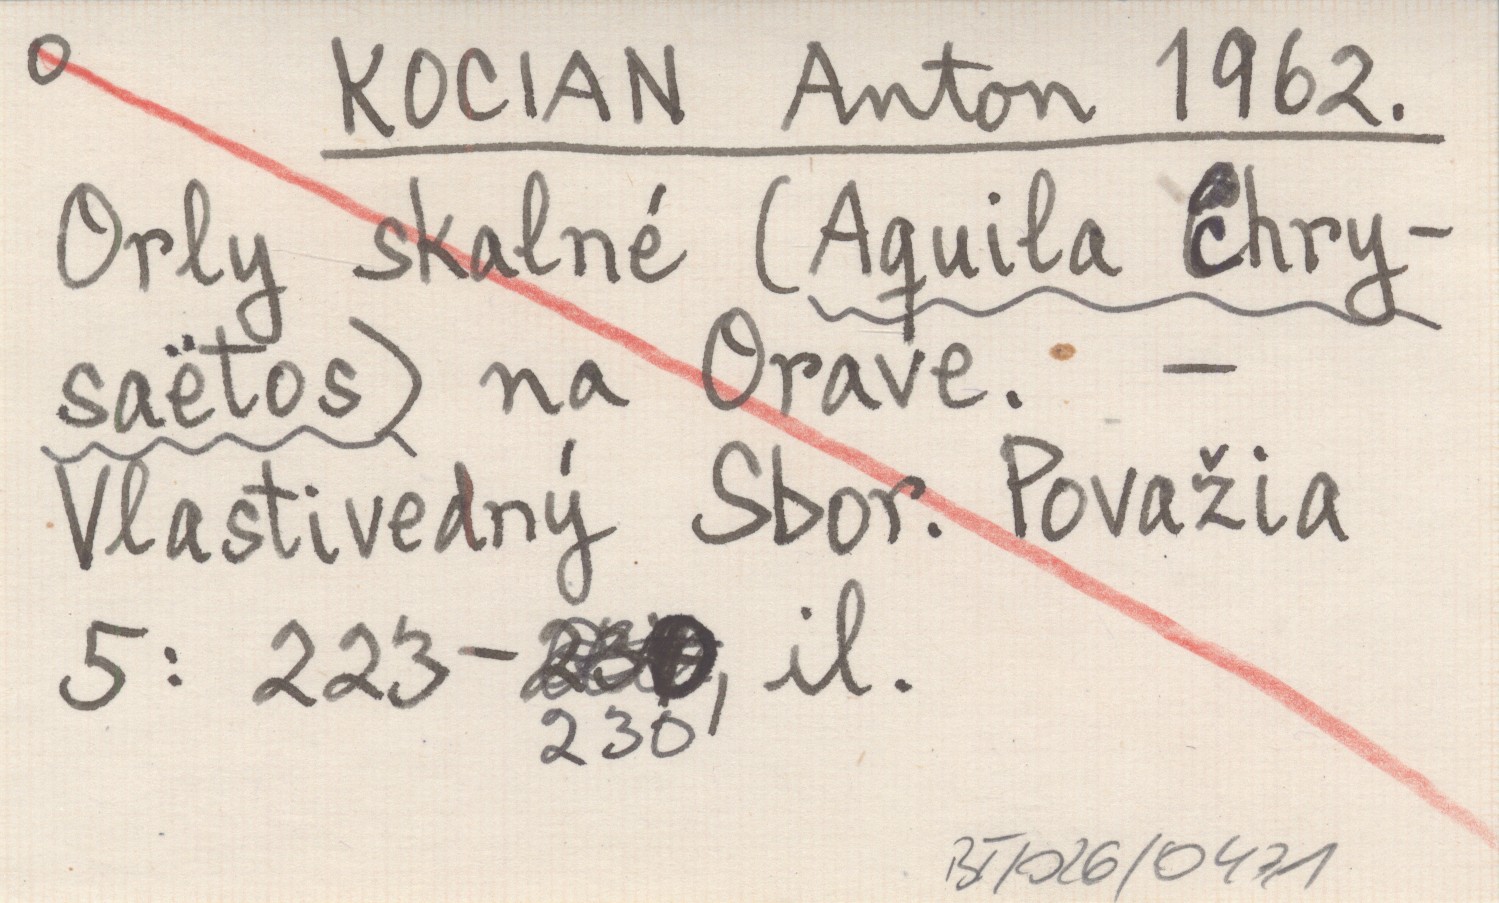 O
KOCIAN Anton 1962.
Orly skalné (Aquila chry-
saëtos) na Orave. –
Vlastivedný Sbor. Považia
5: 223-230, il.
230,
BI/026/0471